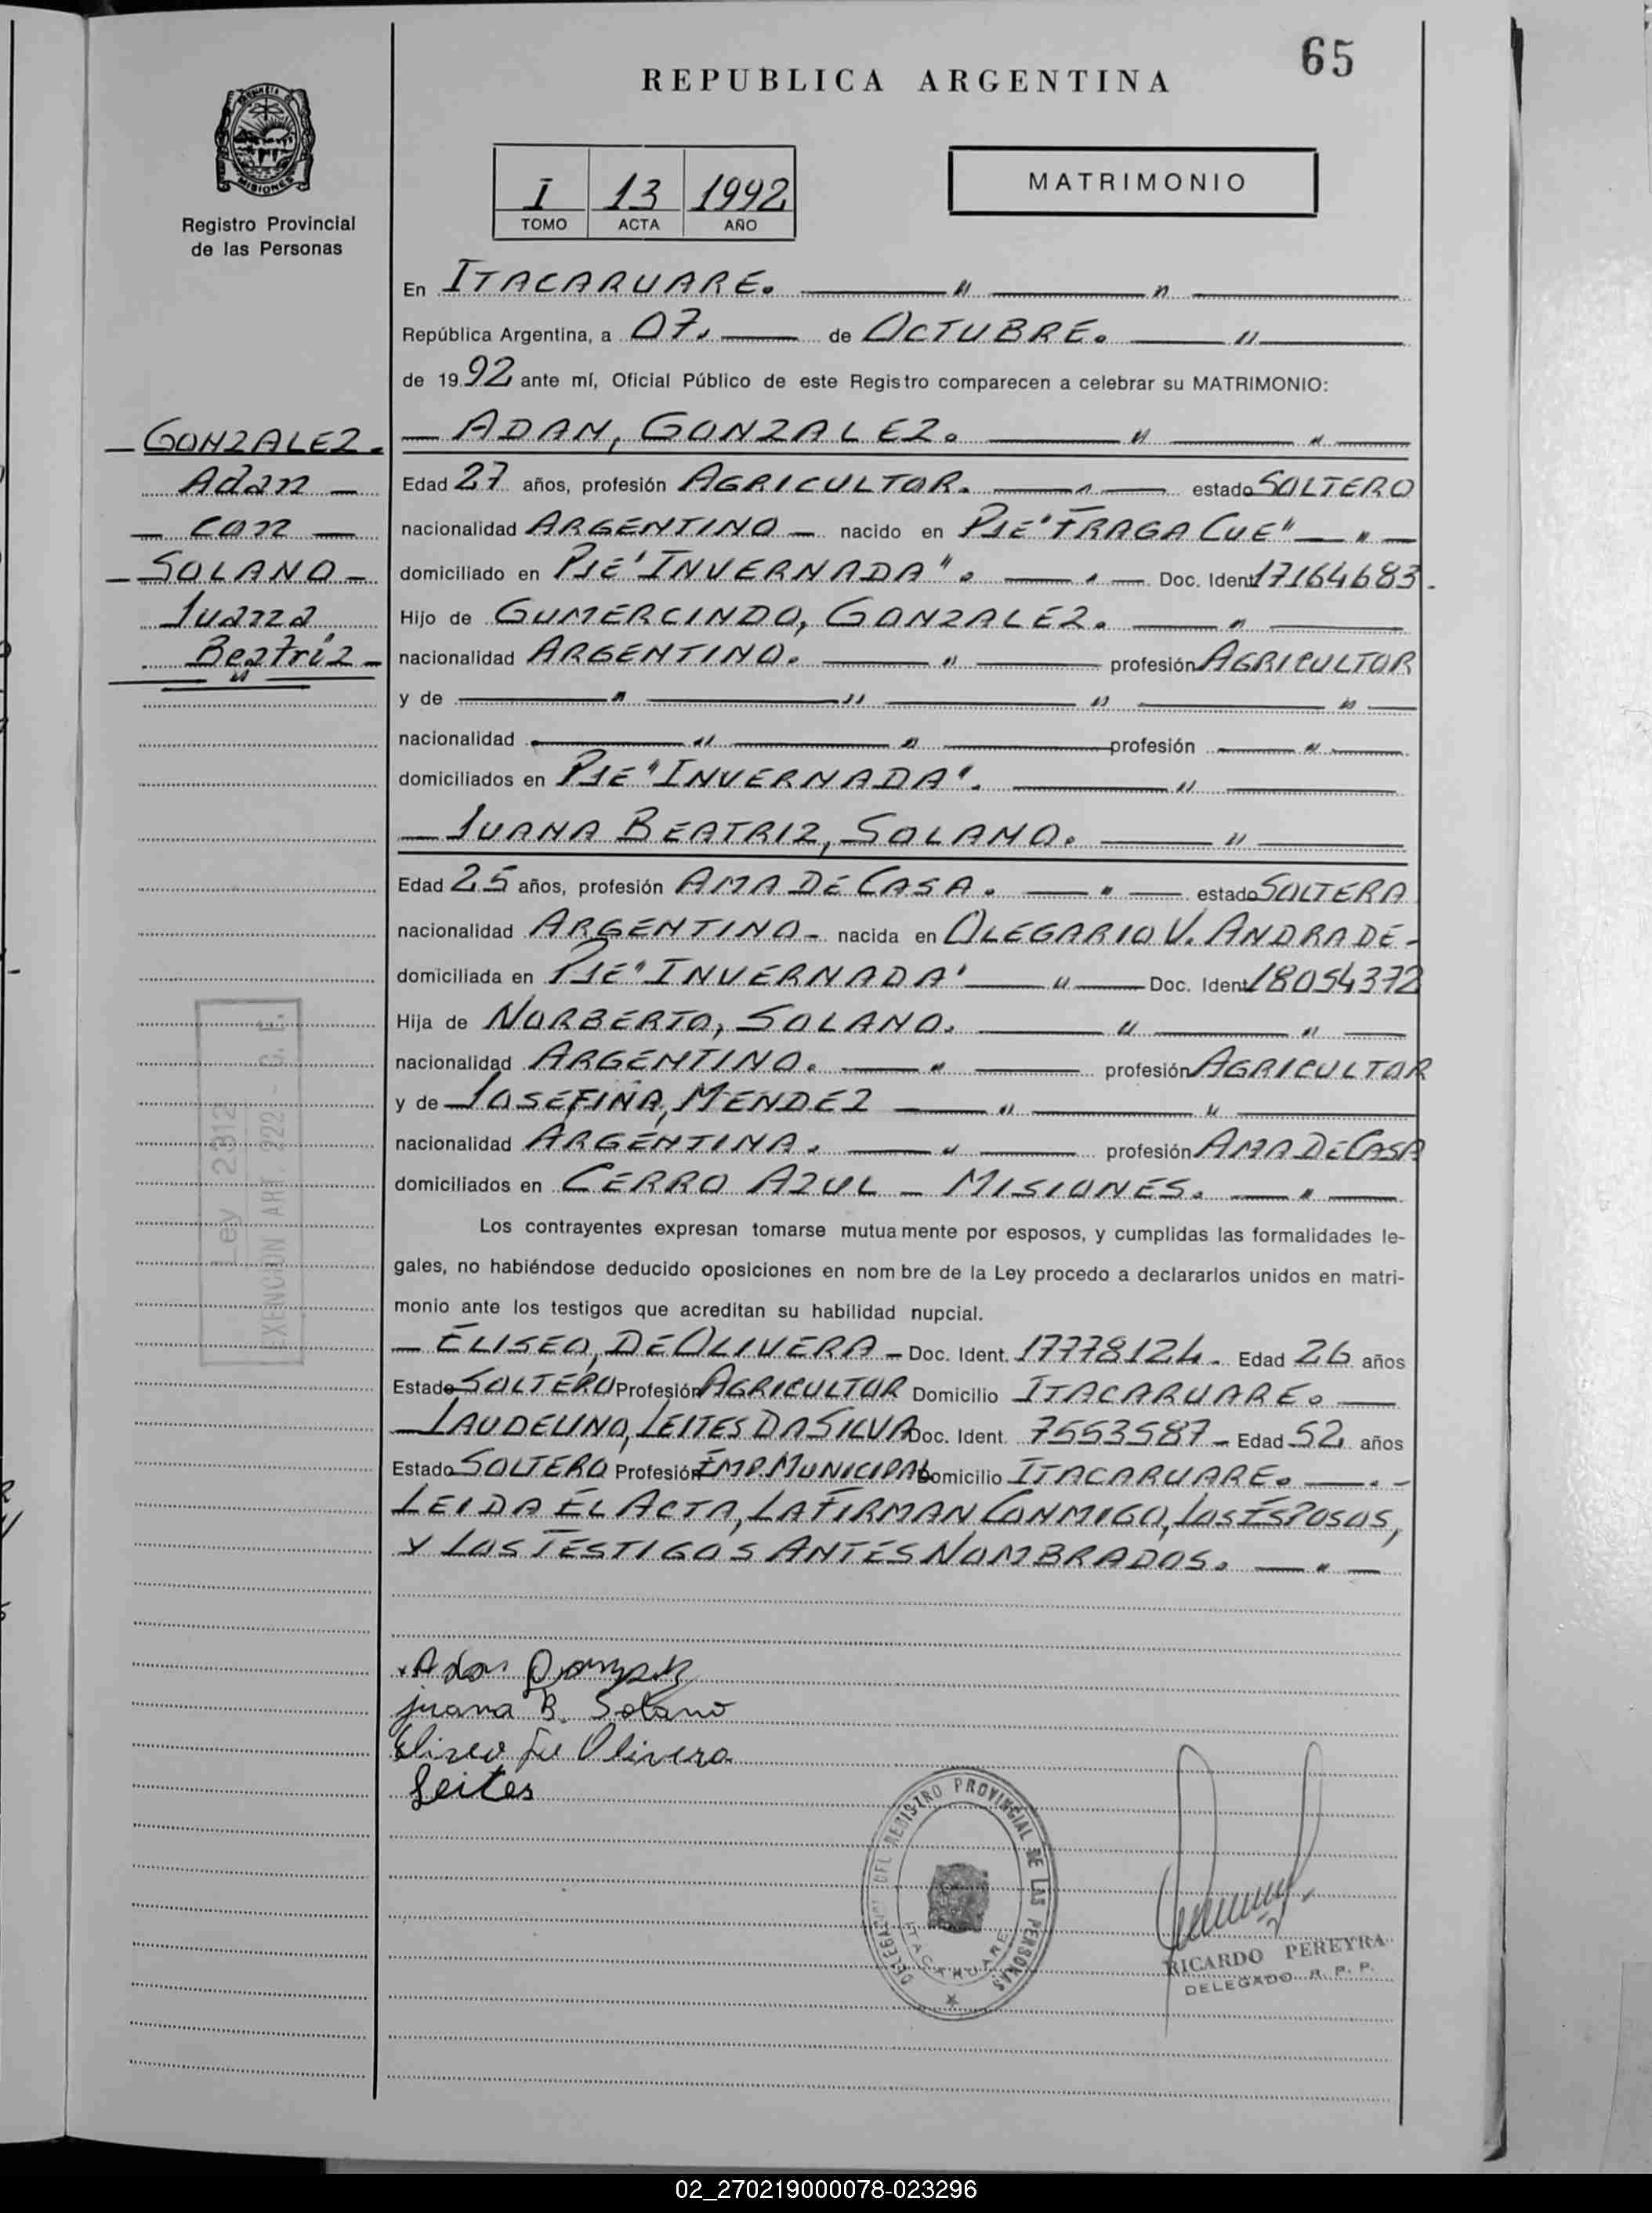 65
REPUBLICA ARGENTINA
MISIONES
Registro Provincial
de las Personas
I 13 1992
TOMO ACTA AÑO
MATRIMONIO
En ITACARUARE.
República Argentina, a 07. de OCTUBRE.
de 1992 ante mí, Oficial Público de este Registro comparecen a celebrar su MATRIMONIO:
GONZALEZ.
Adan
con
SOLANO
Juana
Beatriz
ADAN, GONZALEZ.
Edad 27 años, profesión AGRICULTOR. estado SOLTERO
nacionalidad ARGENTINO nacido en PJE "FRAGA CUE"
domiciliado en PJE "INVERNADA". Doc. Ident. 17164683.
Hijo de GUMERCINDO, GONZALEZ.
nacionalidad ARGENTINO. profesión AGRICULTOR
y de
nacionalidad profesión
domiciliados en PJE "INVERNADA".
JUANA BEATRIZ, SOLANO.
Edad 25 años, profesión AMA DE CASA. estado SOLTERA
nacionalidad ARGENTINO nacida en OLEGARIO V. ANDRADE
domiciliada en PJE "INVERNADA" Doc. Ident. 18054372
Hija de NORBERTO, SOLANO.
nacionalidad ARGENTINO. profesión AGRICULTOR
y de JOSEFINA, MENDEZ
nacionalidad ARGENTINA. profesión AMA DE CASA
domiciliados en CERRO AZUL - MISIONES.
Ley 2312
EXENCION ART. 222 - C. F.
Los contrayentes expresan tomarse mutuamente por esposos, y cumplidas las formalidades le-
gales, no habiéndose deducido oposiciones en nombre de la Ley procedo a declararlos unidos en matri-
monio ante los testigos que acreditan su habilidad nupcial.
ELISEO, DE OLIVERA - Doc. Ident. 17778124. Edad 26 años
Estado SOLTERO Profesión AGRICULTOR Domicilio ITACARUARE.
LAUDELINO, LEITES DA SILVA Doc. Ident. 7553587 - Edad 52 años
Estado SOLTERO Profesión EMP. MUNICIPAL Domicilio ITACARUARE.
LEIDA EL ACTA, LA FIRMAN CONMIGO, LOS ESPOSOS,
Y LOS TESTIGOS ANTES NOMBRADOS.
Adan Gonzalez
juana B. Solano
Eliseo De Olivera
Leites
DELEGACION DEL REGISTRO PROVINCIAL DE LAS PERSONAS
ITACARUARE
RICARDO PEREYRA
DELEGADO R. P. P.
02_270219000078-023296